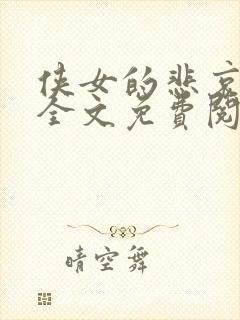 侠女的悲哀
全文免費閱
晴空舞